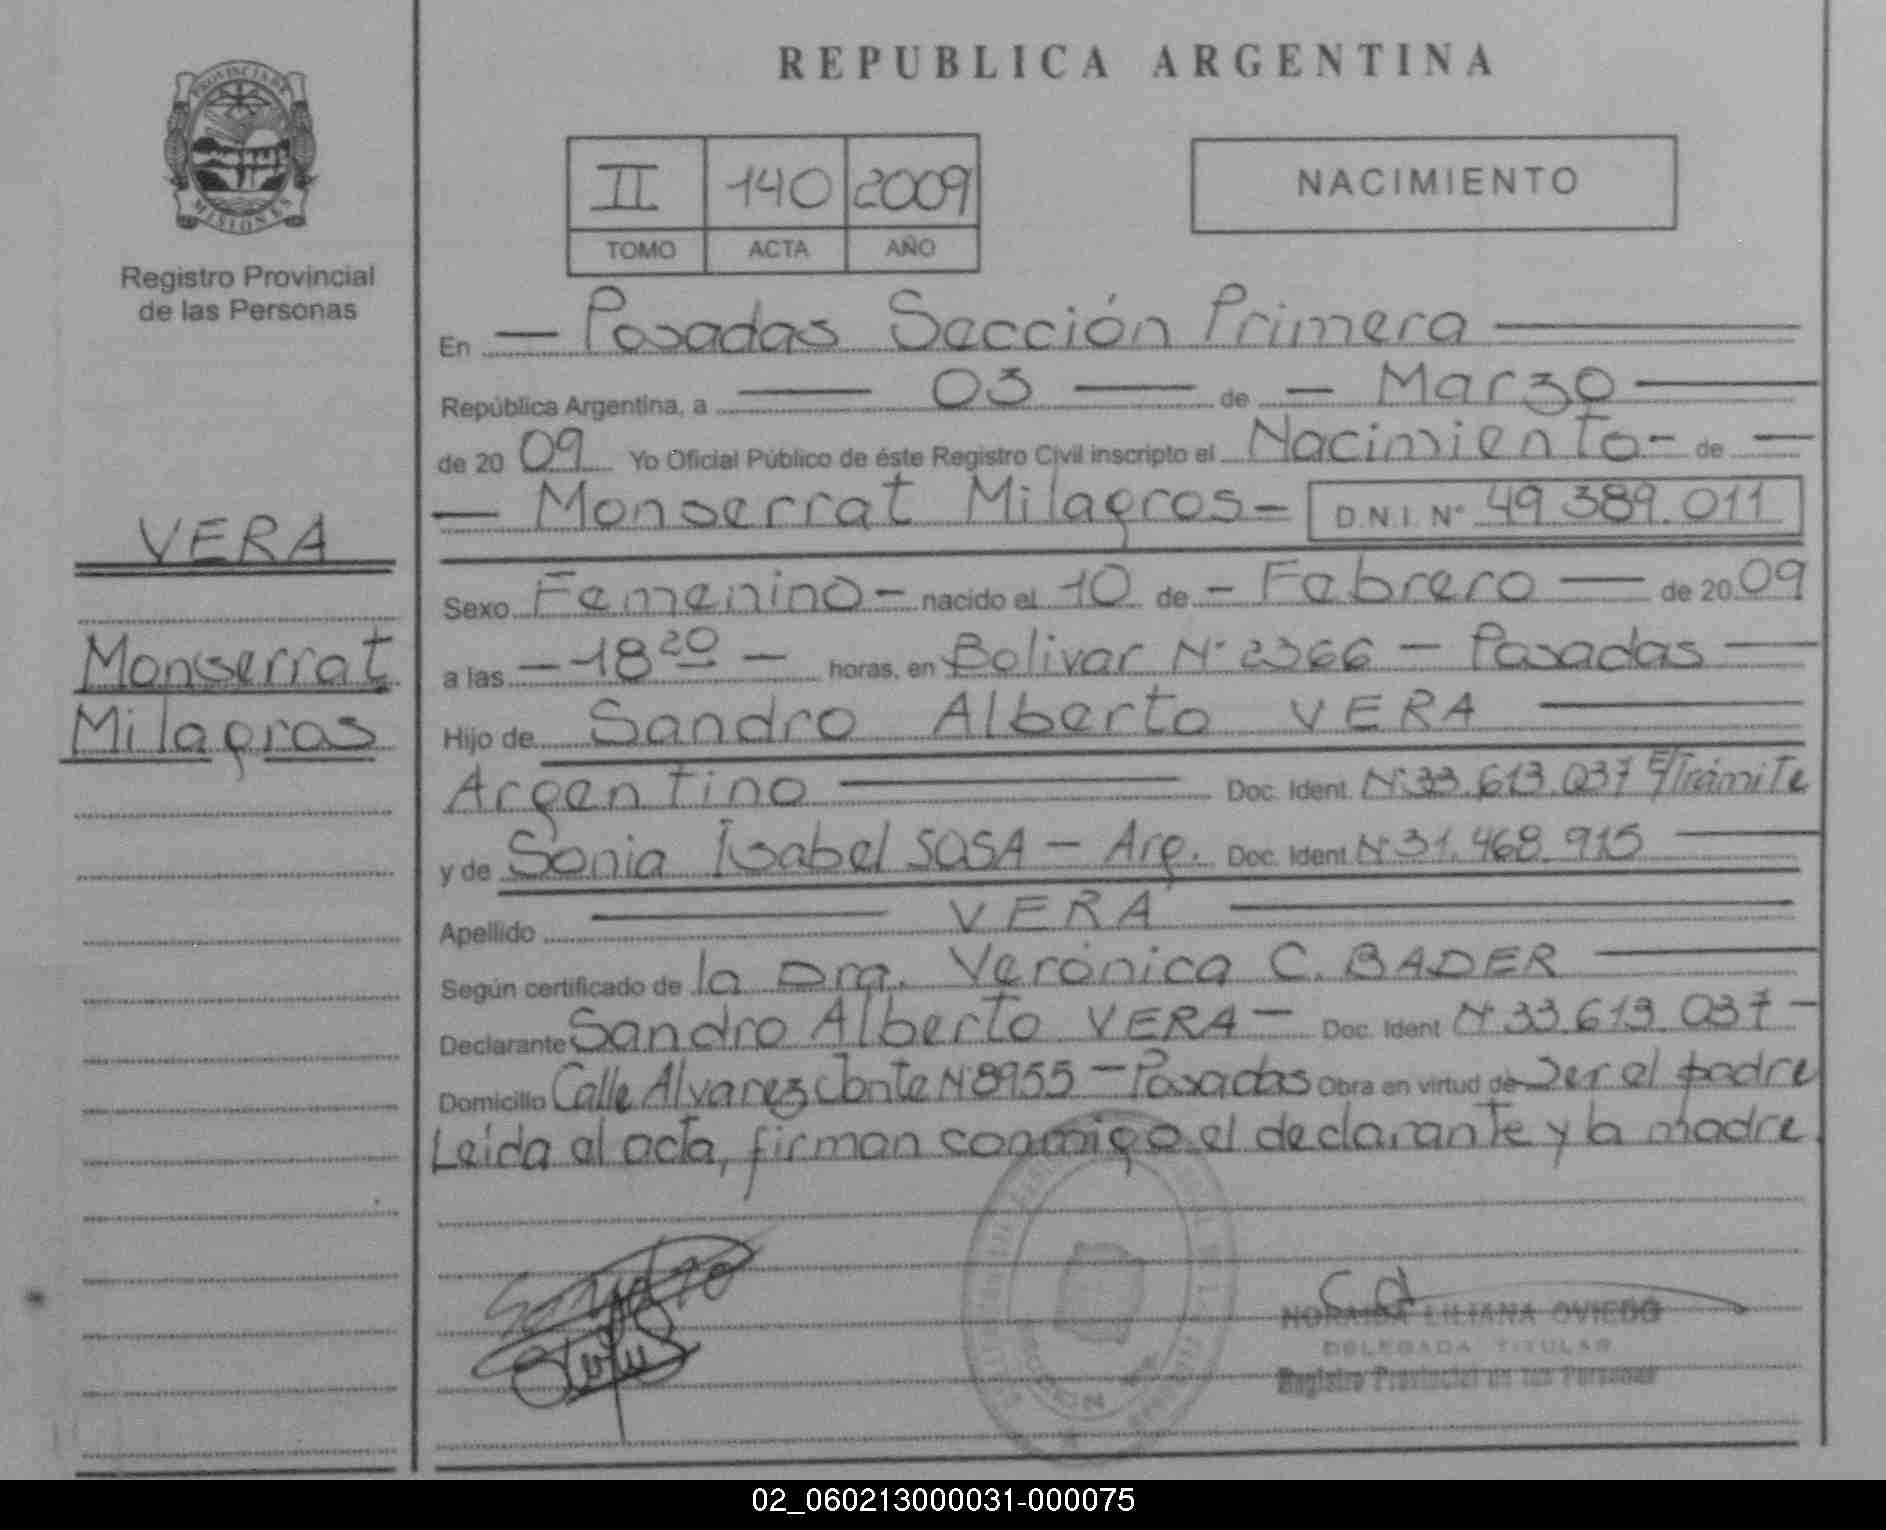 REPUBLICA ARGENTINA
PROVINCIA DE
MISIONES
Registro Provincial
de las Personas
II 140 2009
TOMO ACTA AÑO
NACIMIENTO
En — Posadas Sección Primera —
República Argentina, a — 03 — de — Marzo —
de 20 09 Yo Oficial Público de éste Registro Civil inscripto el Nacimiento - de —
— Monserrat Milagros — D.N.I. Nº 49.389.011
VERA
Monserrat
Milagros
Sexo Femenino - nacido el 10 de - Febrero — de 20 09
a las — 18 20 — horas, en Bolivar Nº 2366 — Posadas —
Hijo de Sandro Alberto VERA —
Argentino — Doc. Ident. Nº 33.613.037 E/Trámite
y de Sonia Isabel SOSA — Arg. Doc. Ident Nº 31.468.915 —
Apellido — VERA —
Según certificado de la Dra. Verónica C. BADER —
Declarante Sandro Alberto VERA — Doc. Ident Nº 33.613.037 —
Domicilio Calle Alvarez Jonte Nº 8955 — Posadas Obra en virtud de Ser el padre
Leida el acta, firman conmigo el declarante y la madre.
Sandro
NORAIDA LILIANA OVIEDO
DELEGADA TITULAR
Registro Provincial de las Personas
02_060213000031-000075